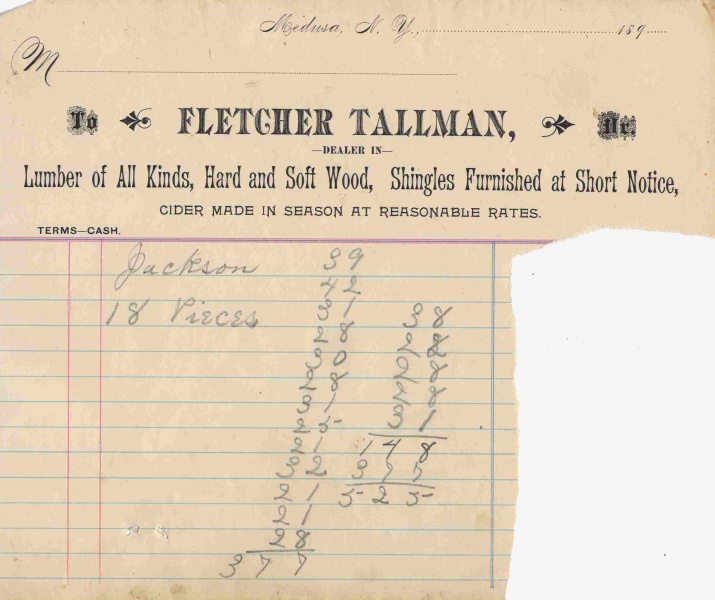 Medusa, N. Y., 189
M
To FLETCHER TALLMAN, Dr.
—DEALER IN—
Lumber of All Kinds, Hard and Soft Wood, Shingles Furnished at Short Notice,
CIDER MADE IN SEASON AT REASONABLE RATES.
TERMS—CASH.
Jackson
18 Pieces
39
42
31
28
30
28
31
25
21
32
21
21
28
377
38
31
148
377
525